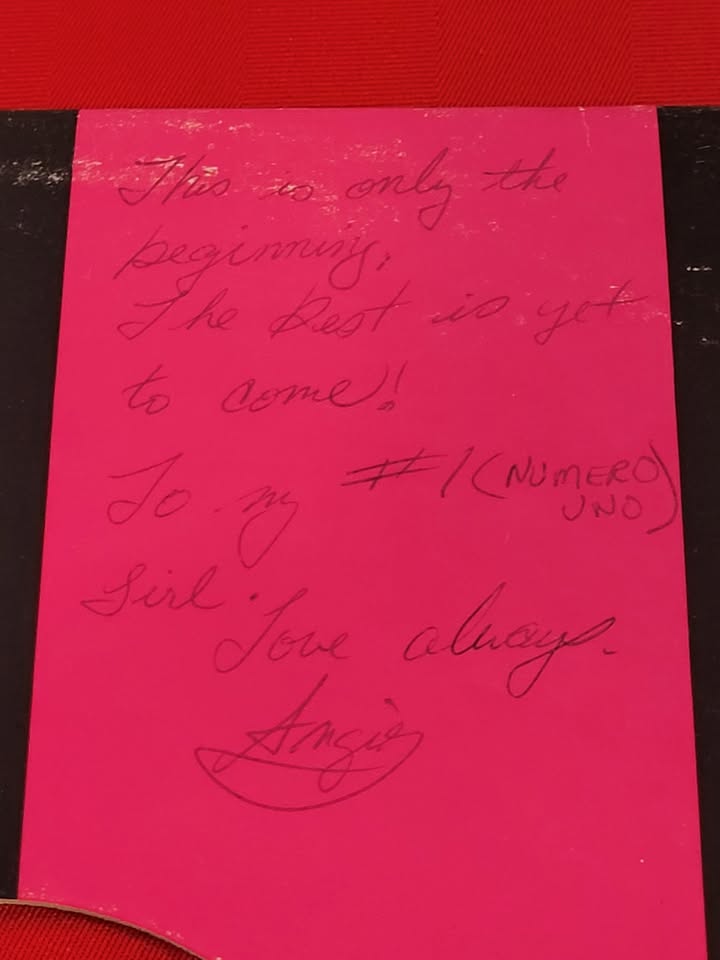 This is only the
beginning,
The best is yet
to come!
To my #1 (NUMERO
UNO)
Girl.
Love always.
Angie